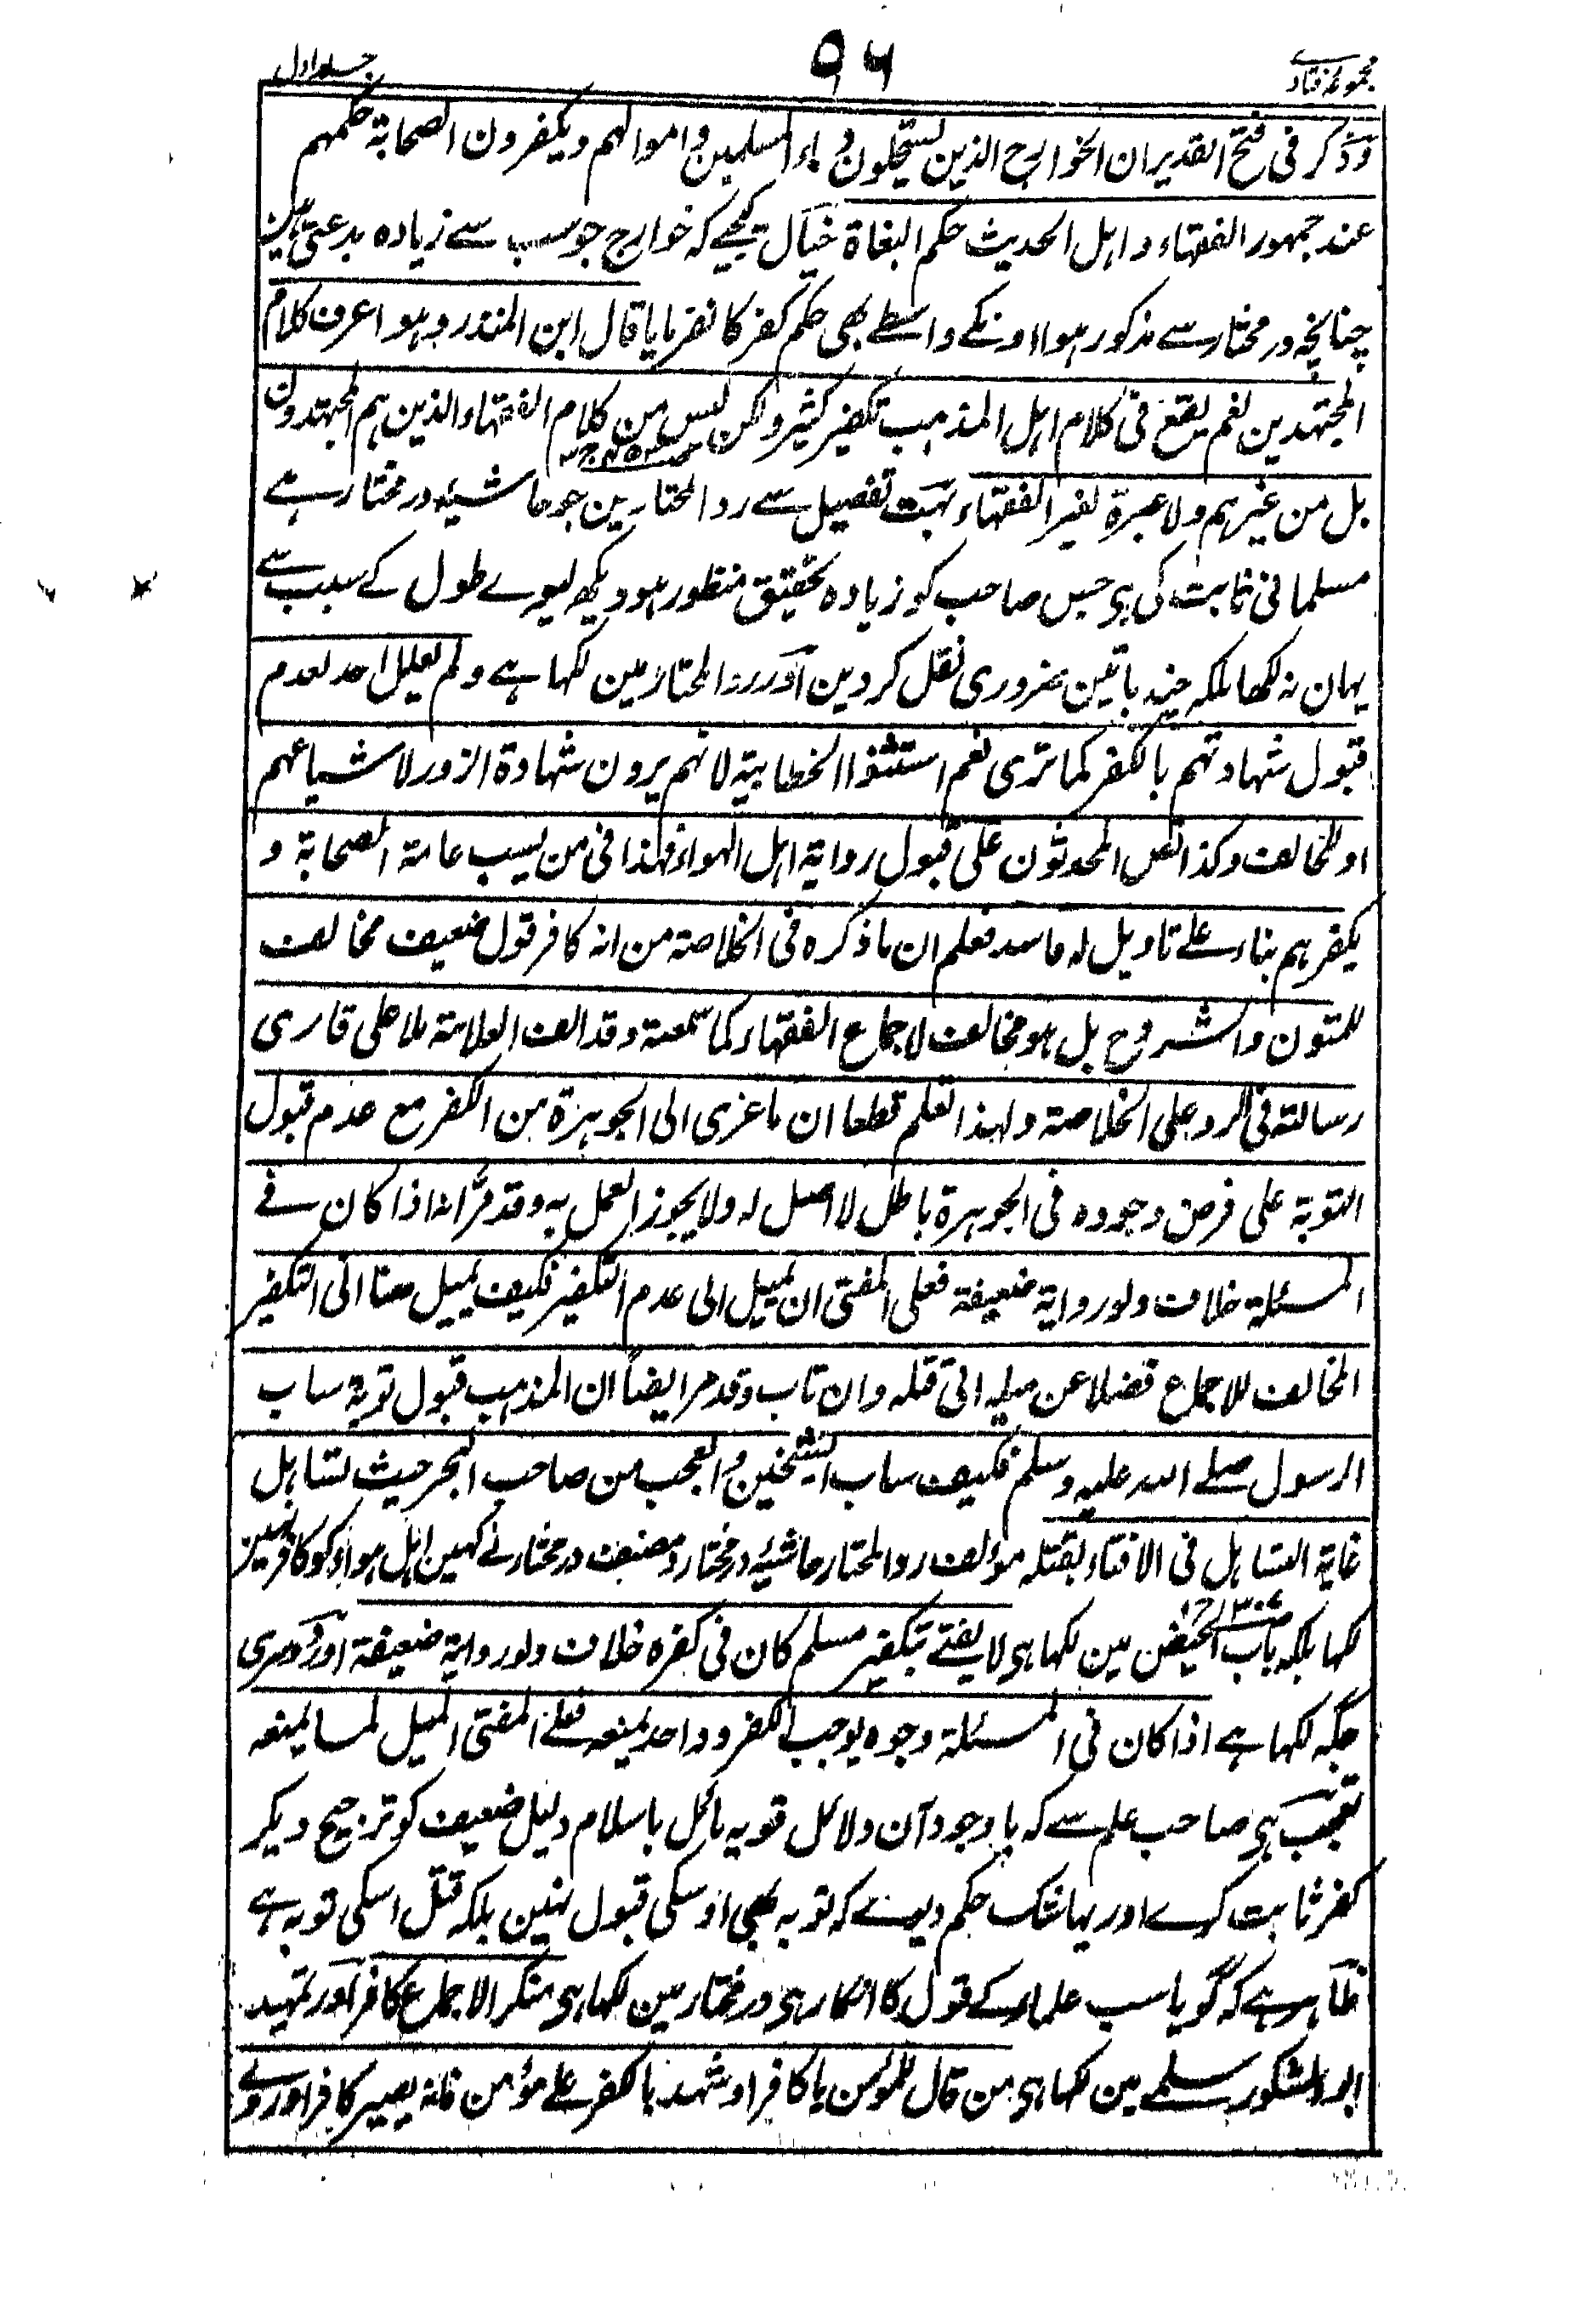 مجموعہ فتاوے
٩٦
جلد اول
وذکر فی فتح القدیر ان الخوارج الذین یستحلون دماء المسلمین واموالہم ویکفرون الصحابۃ حکمہم
عند جمہور الفقہاء واہل الحدیث حکم البغاۃ خیال کیجیے کہ خوارج جو سب سے زیادہ بدعتی ہین
چنانچہ در مختار سے مذکور ہوا اونکے واسطے بھی حکم کفر کا نفرمایا قال ابن المنذر وہو اعرف کلام
المجتہدین نعم یقع فی کلام اہل المذہب تکفیر کثیر ولکن لیس من کلام الفقہاء الذین ہم المجتہدون
بل من غیرہم ولا عبرۃ لغیر الفقہاء بہت تفصیل سے رد المحتار مین جو حاشیہ در مختار ہے
مسلمانی ثابت کی ہی جس صاحب کو زیادہ تحقیق منظور ہو دیکھ لیوے طول کے سبب سے
یہان نہ لکھا بلکہ چند باتین ضروری نقل کردین اور رد المحتار مین لکھا ہے ولم یعلل احد لعدم
قبول شہادتہم بالکفر کما تری نعم استثنوا الخطابیۃ لانہم یرون شہادۃ الزور لاشیاعہم
او للمخالف وکذا نص المحدثون علی قبول روایۃ اہل الہواء فہذا فی من یسب عامۃ الصحابۃ و
یکفرہم بناء علے تاویل لہ فاسد فعلم ان ما ذکرہ فی الخلاصۃ من انہ کافر قول ضعیف مخالف
للمتون والشروح بل ہو مخالف لاجماع الفقہاء کما سمعتہ وقد الف العلامۃ ملا علی قاری
رسالۃ فی الرد علی الخلاصۃ ولہذا تعلم قطعا ان ما عزی الی الجوہرۃ من الکفر مع عدم قبول
التوبۃ علی فرض وجودہ فی الجوہرۃ باطل لا اصل لہ ولا یجوز العمل بہ وقد مر انہ اذا کان فے
المسئلۃ خلاف ولو روایۃ ضعیفۃ فعلی المفتی ان یمیل الی عدم التکفیر فکیف یمیل ہنا الی التکفیر
المخالف للاجماع فضلا عن میلہ الی قتلہ وان تاب وقد مر ایضاً ان المذہب قبول توبۃ ساب
الرسول صلے اللہ علیہ وسلم فکیف ساب الشیخین والعجب من صاحب البحر حیث تساہل
غایۃ التساہل فی الافتاء بقتلہ مؤلف رد المحتار حاشیۂ در مختار ومصنف در مختار نے کہین اہل ہواء کو کافر نہین
کہا بلکہ باب الحیض مین لکھا ہی لا یفتے بتکفیر مسلم کان فی کفرہ خلاف ولو روایۃ ضعیفۃ اور دوسری
جگہ لکھا ہے اذا کان فی المسئلۃ وجوہ یوجب الکفر وواحد یمنعہ فعلے المفتی المیل لما یمنعہ
تعجب ہی صاحب علم سے کہ باوجود آن دلائل قویہ مائل باسلام دلیل ضعیف کو ترجیح دیکر
کفر ثابت کرے اور یہانتک حکم دیوے کہ توبہ بھی اوسکی قبول نہین بلکہ قتل اسکی توبہ ہے
ظاہر ہے کہ گویا سب علماء کے قول کا انکار ہی در مختار مین لکھا ہی منکر الاجماع کافر اور تمہید
ابو الشکور سلمے مین لکھا ہی من قال للمؤمن یا کافر او شہد بالکفر علے مؤمن فانہ یصیر کافرا اور روے